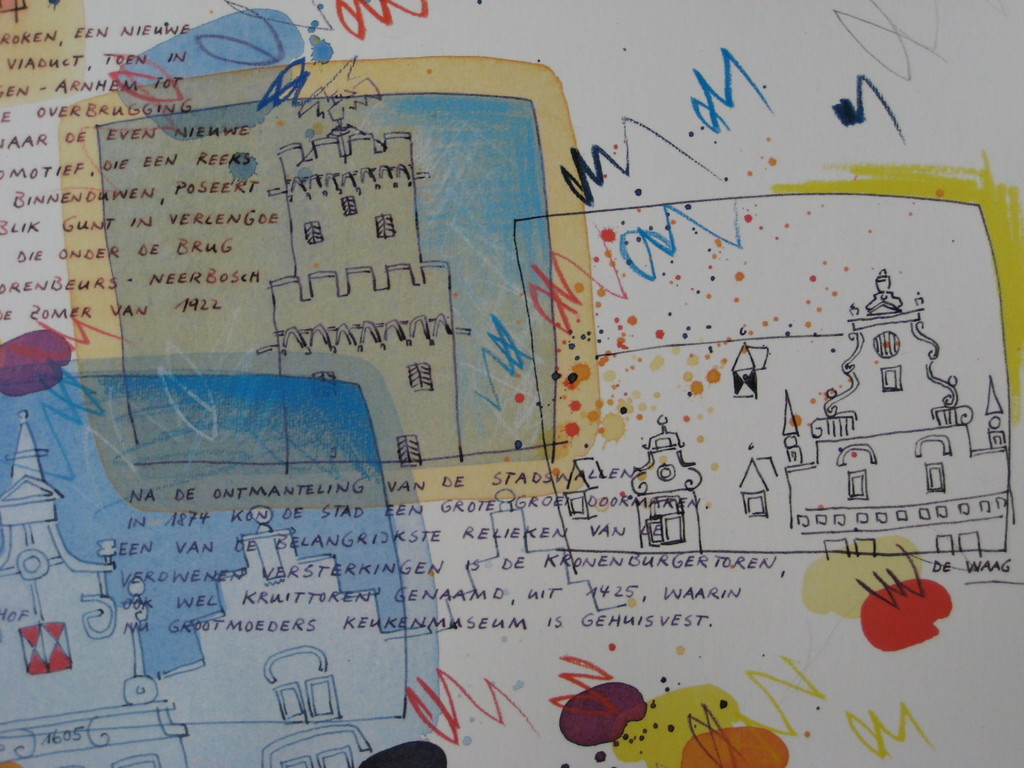 ROKEN, EEN NIEUWE
VIADUCT, TOEN IN
GEN - ARNHEM TOT
E OVERBRUGGING
NAAR DE EVEN NIEUWE
OMOTIEF, DIE EEN REEKS
BINNENDUWEN, POSEERT
BLIK GUNT IN VERLENGDE
DIE ONDER DE BRUG
ORENBEURS - NEERBOSCH
DE ZOMER VAN 1922
NA DE ONTMANTELING VAN DE STADSWALLEN
IN 1874 KON DE STAD EEN GROTE GROEI DOORMAKEN.
EEN VAN DE BELANGRIJKSTE RELIEKEN VAN
VERDWENEN VERSTERKINGEN IS DE KRONENBURGERTOREN,
OOK WEL KRUITTOREN GENAAMD, UIT 1425, WAARIN
NU GROOTMOEDERS KEUKENMUSEUM IS GEHUISVEST.
DE WAAG
HOF
1605